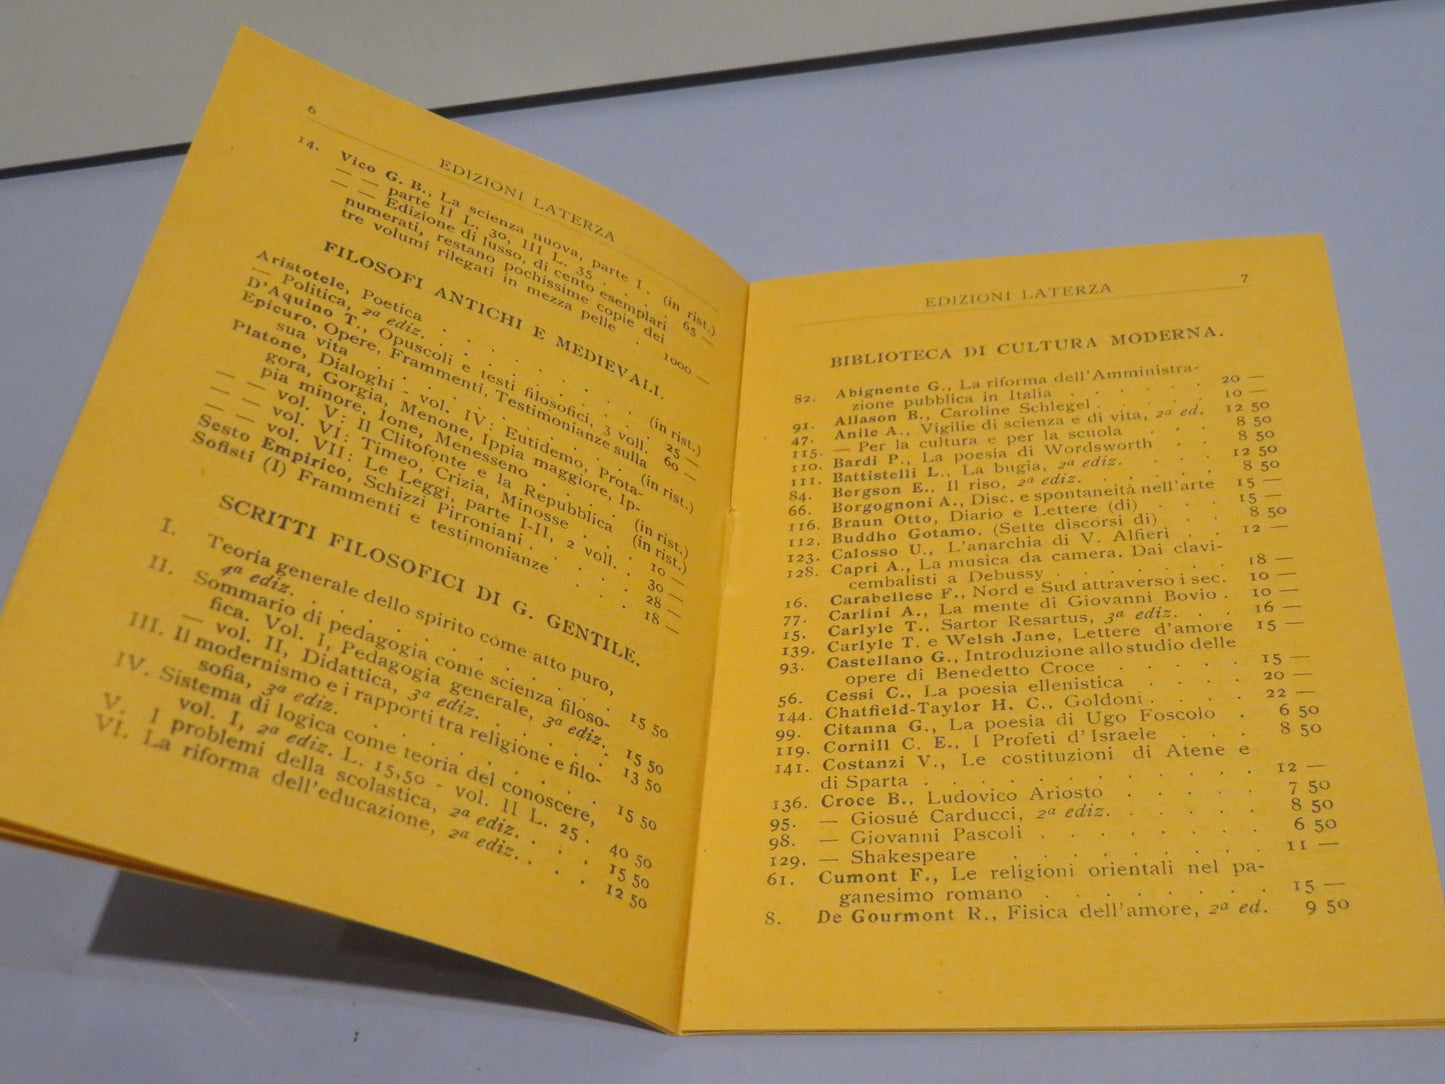 6
EDIZIONI LATERZA
14. Vico G. B., La scienza nuova, parte I . (in rist.)
— — parte II L. 30, III L. 35 . . . 65 —
— — Edizione di lusso, di cento esemplari
numerati, restano pochissime copie dei
tre volumi rilegati in mezza pelle . 1000 —
FILOSOFI ANTICHI E MEDIEVALI.
Aristotele, Poetica . . . . . . (in rist.)
— Politica, 2ª ediz. . . . . . . 25 —
D'Aquino T., Opuscoli e testi filosofici, 3 voll. 60 —
Epicuro, Opere, Frammenti, Testimonianze sulla
sua vita . . . . . . . (in rist.)
Platone, Dialoghi - vol. IV: Eutidemo, Prota-
gora, Gorgia, Menone, Ippia maggiore, Ip-
pia minore, Ione, Menesseno . . . (in rist.)
— — vol. V: Il Clitofonte e la Repubblica (in rist.)
— — vol. VI: Timeo, Crizia, Minosse . . 10 —
— — vol. VII: Le Leggi, parte I-II, 2 voll. . 30 —
Sesto Empirico, Schizzi Pirroniani . . . 28 —
Sofisti (I) Frammenti e testimonianze . . 18 —
SCRITTI FILOSOFICI DI G. GENTILE.
I. Teoria generale dello spirito come atto puro,
4ª ediz. . . . . . . . . 15 50
II. Sommario di pedagogia come scienza filoso-
fica. Vol. I, Pedagogia generale, 3ª ediz. . 15 50
— vol. II, Didattica, 3ª ediz. . . . . 13 50
III. Il modernismo e i rapporti tra religione e filo-
sofia, 3ª ediz. . . . . . . . 15 50
IV. Sistema di logica come teoria del conoscere,
vol. I, 2ª ediz. L. 15,50 - vol. II L. 25 . 40 50
V. I problemi della scolastica, 2ª ediz. . . . 15 50
VI. La riforma dell'educazione, 2ª ediz. . . . 12 50
EDIZIONI LATERZA
7
BIBLIOTECA DI CULTURA MODERNA.
82. Abignente G., La riforma dell'Amministra-
zione pubblica in Italia . . . . . 20 —
91. Allason B., Caroline Schlegel . . . . 10 —
47. Anile A., Vigilie di scienza e di vita, 2ª ed. 12 50
115. — Per la cultura e per la scuola . . . 8 50
110. Bardi P., La poesia di Wordsworth . . 8 50
111. Battistelli L., La bugia, 2ª ediz. . . . 12 50
84. Bergson E., Il riso, 2ª ediz. . . . . 8 50
66. Borgognoni A., Disc. e spontaneità nell'arte 15 —
116. Braun Otto, Diario e Lettere (di) . . . 15 —
112. Buddho Gotamo, (Sette discorsi di) . . 8 50
123. Calosso U., L'anarchia di V. Alfieri . . 12 —
128. Capri A., La musica da camera. Dai clavi-
cembalisti a Debussy . . . . . . 18 —
16. Carabellese F., Nord e Sud attraverso i sec. 10 —
77. Carlini A., La mente di Giovanni Bovio . 10 —
15. Carlyle T., Sartor Resartus, 3ª ediz. . . 16 —
139. Carlyle T. e Welsh Jane, Lettere d'amore 15 —
93. Castellano G., Introduzione allo studio delle
opere di Benedetto Croce . . . . 15 —
56. Cessi C., La poesia ellenistica . . . . 20 —
144. Chatfield-Taylor H. C., Goldoni . . . . 22 —
99. Citanna G., La poesia di Ugo Foscolo . 6 50
119. Cornill C. E., I Profeti d'Israele . . . 8 50
141. Costanzi V., Le costituzioni di Atene e
di Sparta . . . . . . . . . 12 —
136. Croce B., Ludovico Ariosto . . . . . 7 50
95. — Giosué Carducci, 2ª ediz. . . . . . 8 50
98. — Giovanni Pascoli . . . . . . . 6 50
129. — Shakespeare . . . . . . . . 11 —
61. Cumont F., Le religioni orientali nel pa-
ganesimo romano . . . . . . . . 15 —
8. De Gourmont R., Fisica dell'amore, 2ª ed. 9 50